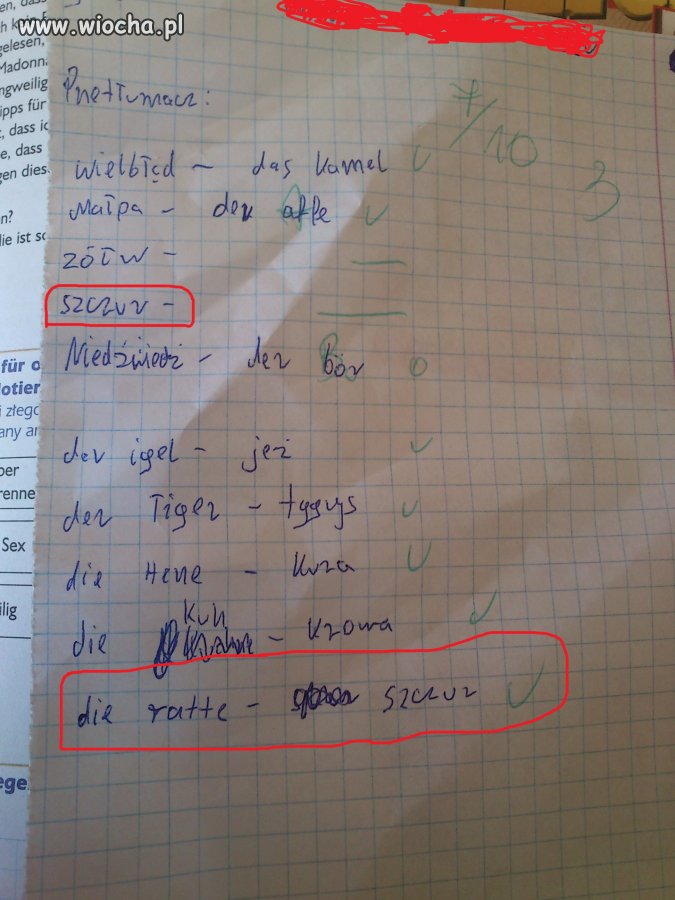 www.wiocha.pl
elesen,
Madonna
ngweilig
ipps für
, dass ic
e, dass
gen dies
n?
lie ist so
für o
lotier
i złego
any ar
ber
renne
Sex
ilig
ege
Pnetłumacz:
7/10
3
wielbłąd - das kamel
Małpa - der affe
żółw -
szczur -
Niedźwiedź - der bör
der igel - jeż
der Tiger - tygrys
die Hene - kura
die Kuh - krowa
die ratte - szczur